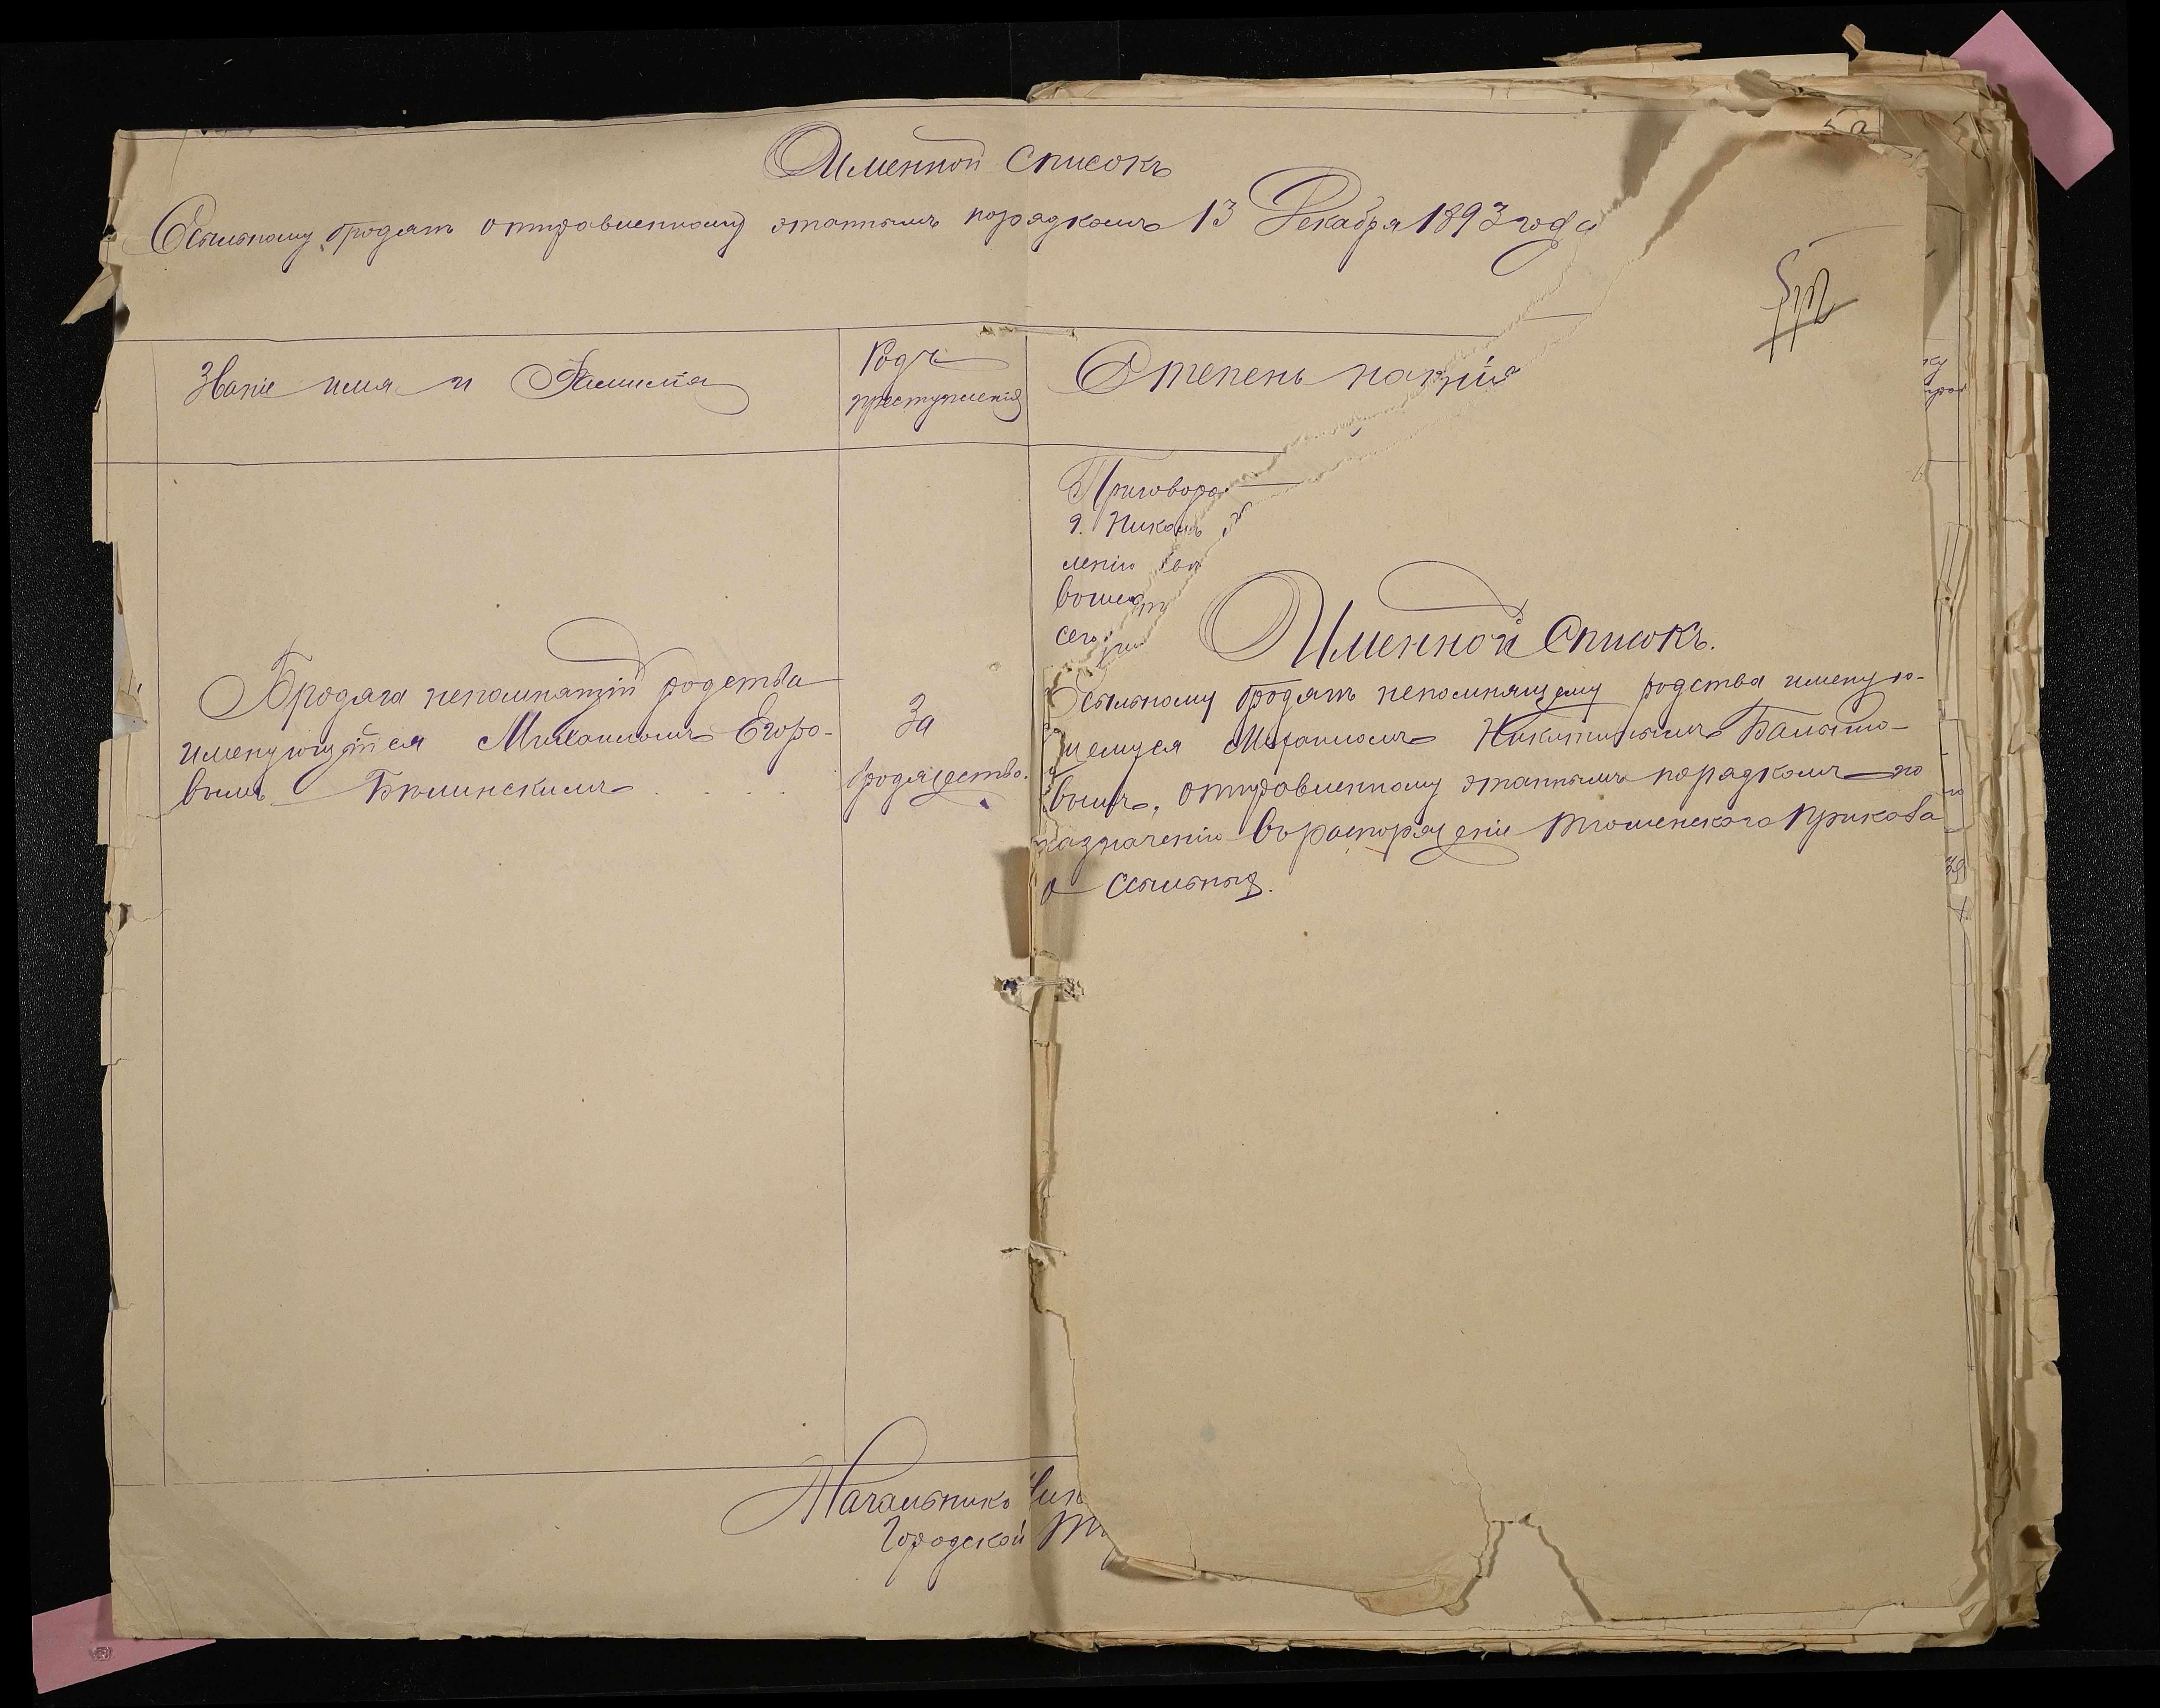 Именной списокъ
Ссыльному бродягѣ отправленному этапнымъ порядкомъ 13 Декабря 1893 года
Званіе имя и Фамилія
Родъ
преступленія
Степень нака
Бродяга непомнящій родства
именующійся Михаиломъ Егоро-
вымъ
За
бродяжество.
Приговоро
г. Никол
ленію
сего
Начальникъ Ник
Городской Тю
Именной Списокъ.
Ссыльному бродягѣ непомнящему родства именую-
щемуся Михаиломъ Никитинымъ
вымъ, отправленному этапнымъ порядкомъ по
назначенію въ распоряженіе Тюменскаго Приказа
о ссыльныхъ.